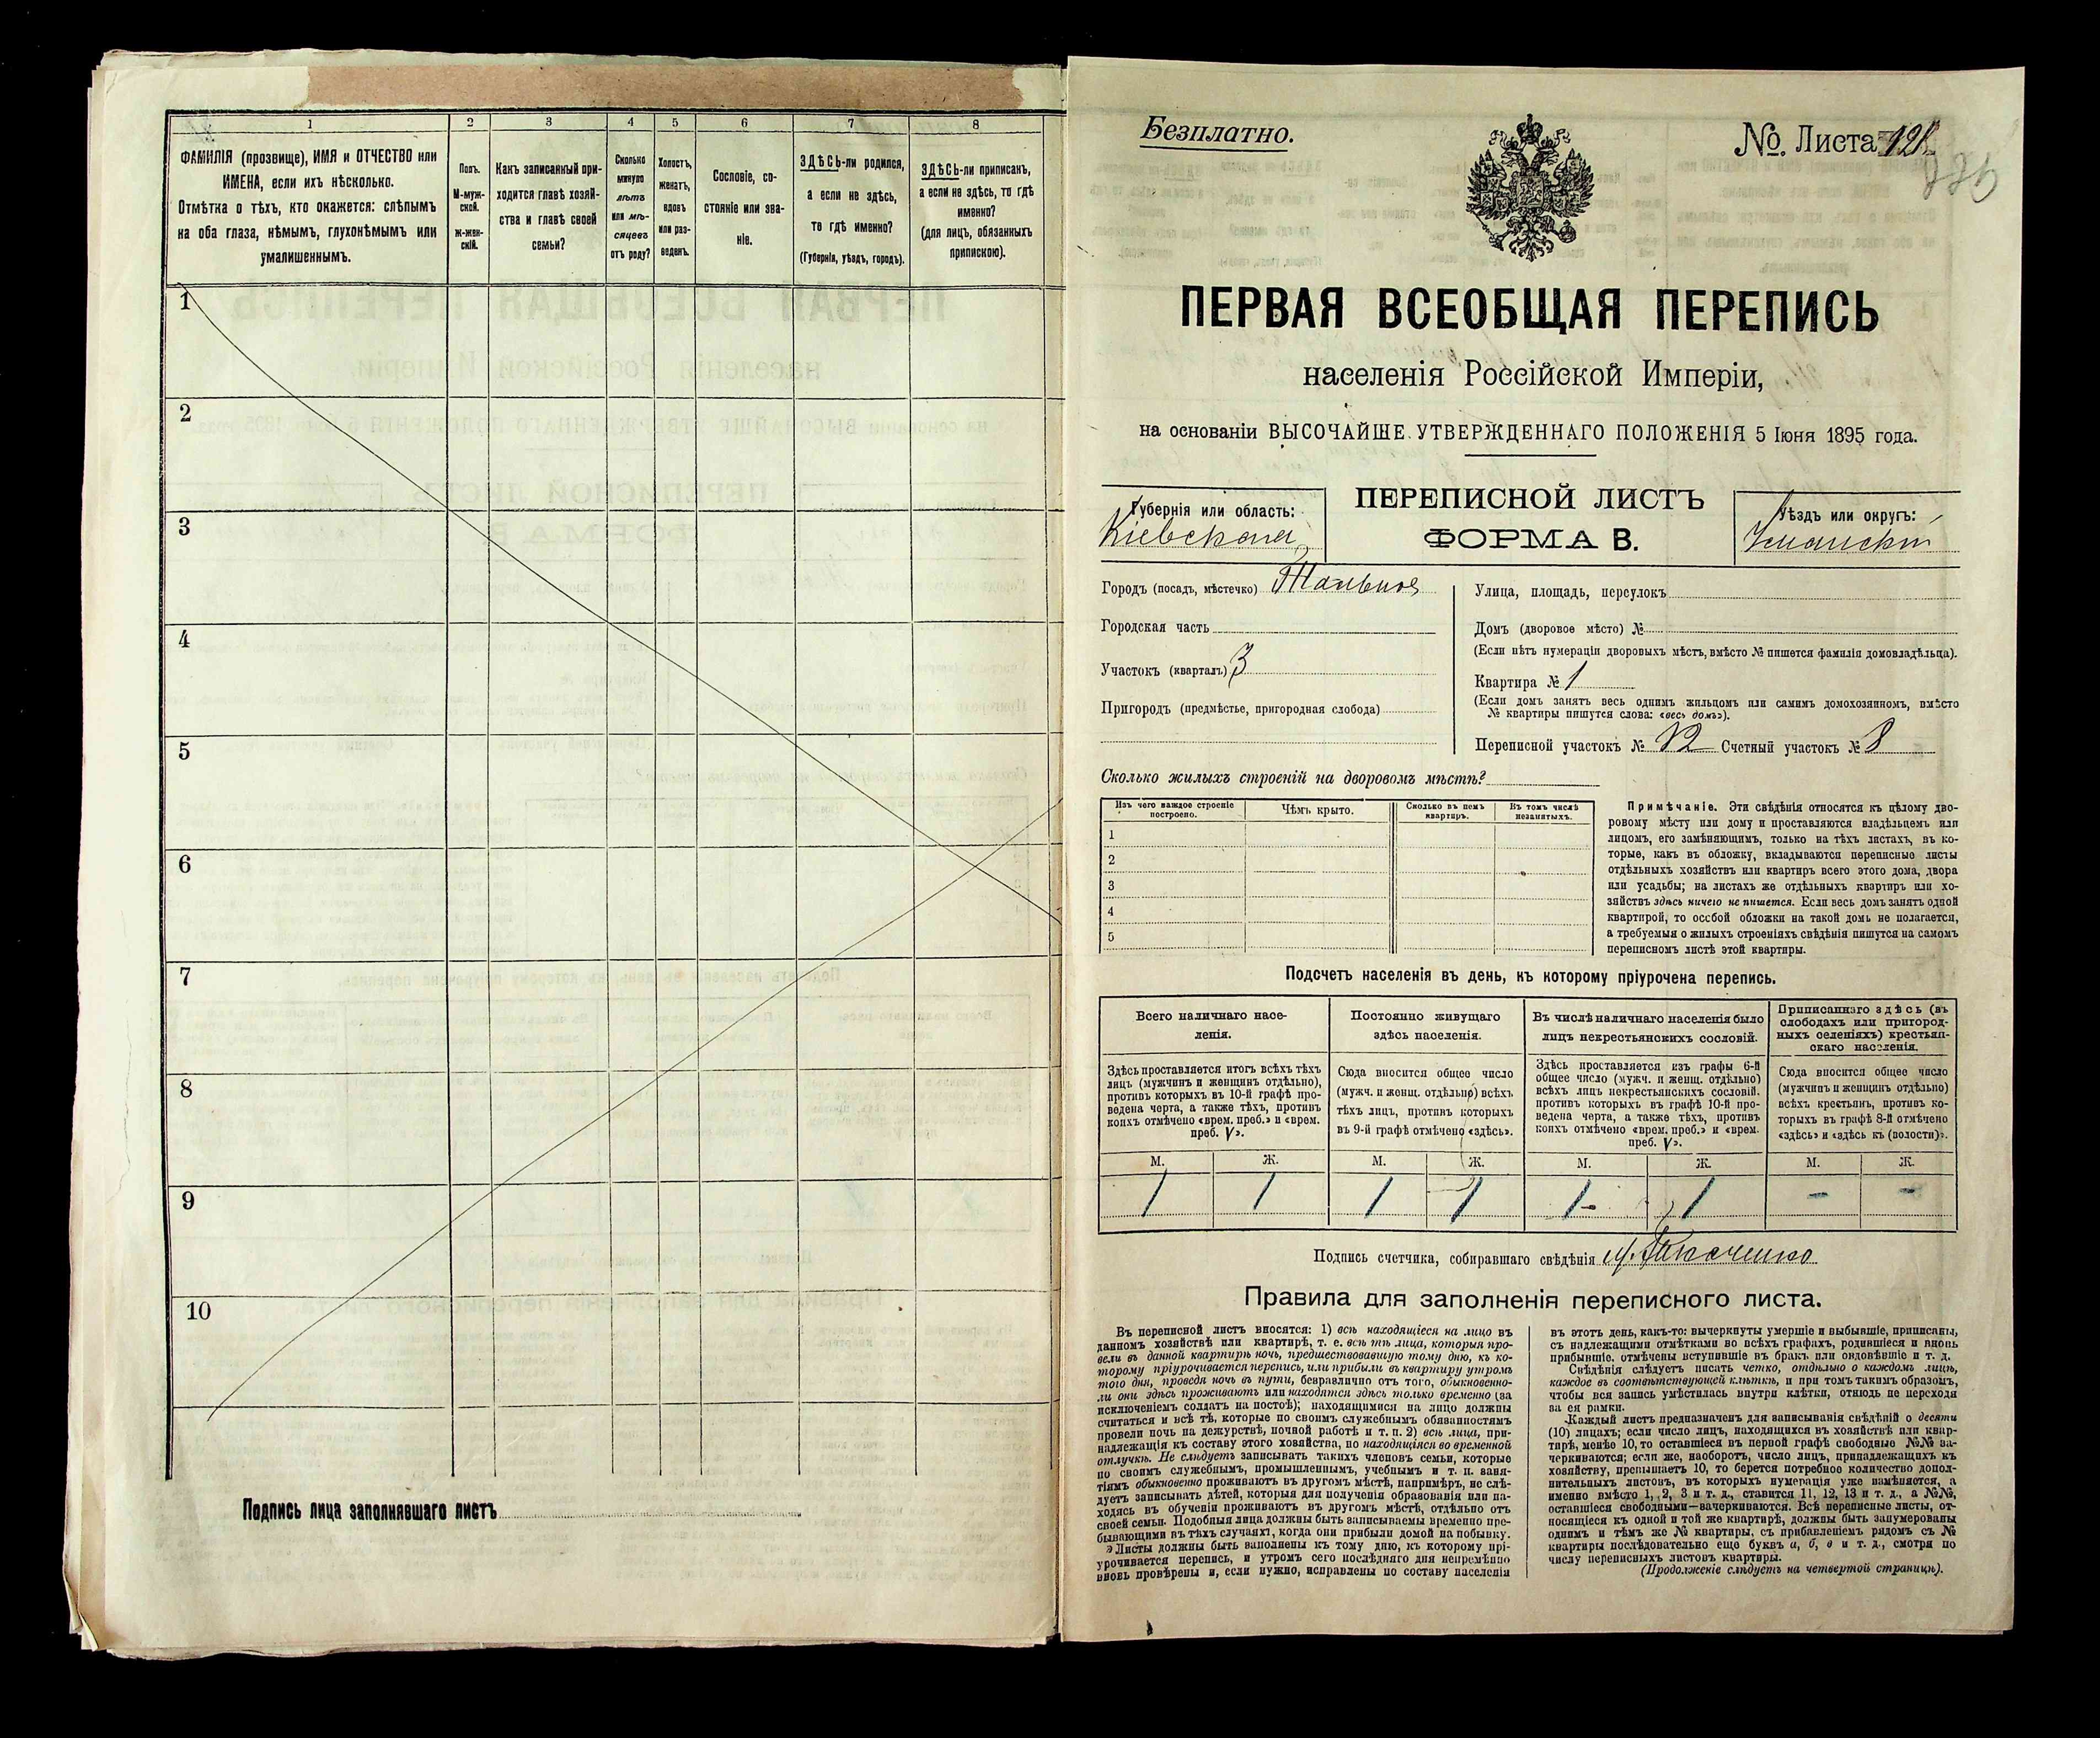 1
2
3
4
5
6
7
8
ФАМИЛІЯ (прозвище), ИМЯ и ОТЧЕСТВО или
ИМЕНА, если ихъ нѣсколько.
Отмѣтка о тѣхъ, кто окажется: слѣпымъ
на оба глаза, нѣмымъ, глухонѣмымъ или
умалишеннымъ.
Полъ.
М-муж-
ской.
Ж-жен-
скій.
Какъ записанный при-
ходится главѣ хозяй-
ства и главѣ своей
семьи?
Сколько
минуло
лѣтъ
или мѣ-
сяцевъ
отъ роду?
Холостъ,
женатъ,
вдовъ
или раз-
веденъ.
Сословіе, со-
стояніе или зва-
ніе.
ЗДѢСЬ-ли родился,
а если не здѣсь,
то гдѣ именно?
(Губернія, уѣздъ, городъ).
ЗДѢСЬ-ли приписанъ,
а если не здѣсь, то гдѣ
именно?
(для лицъ, обязанныхъ
припискою).
1
2
3
4
5
6
7
8
9
10
Подпись лица заполнявшаго листъ
Безплатно.
№ Листа
ПЕРВАЯ ВСЕОБЩАЯ ПЕРЕПИСЬ
населенія Россійской Имперіи,
на основаніи ВЫСОЧАЙШЕ УТВЕРЖДЕННАГО ПОЛОЖЕНІЯ 5 Іюня 1895 года.
Губернія или область:
Кіевская
ПЕРЕПИСНОЙ ЛИСТЪ
ФОРМА В.
Уѣздъ или округъ:
Уманскій
Городъ (посадъ, мѣстечко) Тальное
Городская часть
Участокъ (кварталъ) 3
Пригородъ (предмѣстье, пригородная слобода)
Улица, площадь, переулокъ
Домъ (дворовое мѣсто) №
(Если нѣтъ нумераціи дворовыхъ мѣстъ, вмѣсто № пишется фамилія домовладѣльца).
Квартира № 1
(Если домъ занятъ весь однимъ жильцомъ или самимъ домохозяиномъ, вмѣсто
№ квартиры пишутся слова: «весь домъ»).
Переписной участокъ № 12 Счетный участокъ № 8
Сколько жилыхъ строеній на дворовомъ мѣстѣ?
Изъ чего каждое строеніе
построено.
Чѣмъ крыто.
Сколько въ немъ
квартиръ.
Въ томъ числѣ
незанятыхъ.
1
2
3
4
5
Примѣчаніе. Эти свѣдѣнія относятся къ цѣлому дво-
ровому мѣсту или дому и проставляются владѣльцемъ или
лицомъ, его замѣняющимъ, только на тѣхъ листахъ, въ ко-
торые, какъ въ обложку, вкладываются переписные листы
отдѣльныхъ хозяйствъ или квартиръ всего этого дома, двора
или усадьбы; на листахъ же отдѣльныхъ квартиръ или хо-
зяйствъ здѣсь ничего не пишется. Если весь домъ занятъ одной
квартирой, то особой обложки на такой домъ не полагается,
а требуемыя о жилыхъ строеніяхъ свѣдѣнія пишутся на самомъ
переписномъ листѣ этой квартиры.
Подсчетъ населенія въ день, къ которому пріурочена перепись.
Всего наличнаго насе-
ленія.
Здѣсь проставляется итогъ всѣхъ тѣхъ
лицъ (мужчинъ и женщинъ отдѣльно),
противъ которыхъ въ 10-й графѣ про-
ведена черта, а также тѣхъ, противъ
коихъ отмѣчено «врем. преб.» и «врем.
преб. V».
Постоянно живущаго
здѣсь населенія.
Сюда вносится общее число
(мужч. и женщ. отдѣльно) всѣхъ
тѣхъ лицъ, противъ которыхъ
въ 9-й графѣ отмѣчено «здѣсь».
Въ числѣ наличнаго населенія было
лицъ некрестьянскихъ сословій.
Здѣсь проставляется изъ графы 6-й
общее число (мужч. и женщ. отдѣльно)
всѣхъ лицъ некрестьянскихъ сословій.
противъ которыхъ въ графѣ 10-й про-
ведена черта, а также тѣхъ, противъ
коихъ отмѣчено «врем. преб.» и «врем.
преб. V».
Приписаннаго здѣсь (въ
слободахъ или пригород-
ныхъ селеніяхъ) крестьян-
скаго населенія.
Сюда вносится общее число
(мужчинъ и женщинъ отдѣльно)
всѣхъ крестьянъ, противъ ко-
торыхъ въ графѣ 8-й отмѣчено
«здѣсь» и «здѣсь къ (волости)».
М. Ж. М. Ж. М. Ж. М. Ж.
1 1 1 1 1 1 - -
Подпись счетчика, собиравшаго свѣдѣнія
Правила для заполненія переписного листа.
Въ переписной листъ вносятся: 1) всѣ находящіеся на лицо въ
данномъ хозяйствѣ или квартирѣ, т. е. всѣ тѣ лица, которыя про-
вели въ данной квартирѣ ночь, предшествовавшую тому дню, къ ко-
торому пріурочивается перепись, или прибыли въ квартиру утромъ
того дня, проведя ночь въ пути, безразлично отъ того, обыкновенно-
ли они здѣсь проживаютъ или находятся здѣсь только временно (за
исключеніемъ солдатъ на постоѣ); находящимися на лицо должны
считаться и всѣ тѣ, которые по своимъ служебнымъ обязанностямъ
провели ночь на дежурствѣ, ночной работѣ и т. п. 2) всѣ лица, при-
надлежащія къ составу этого хозяйства, но находящіяся во временной
отлучкѣ. Не слѣдуетъ записывать такихъ членовъ семьи, которые
по своимъ служебнымъ, промышленнымъ, учебнымъ и т. п. заня-
тіямъ обыкновенно проживаютъ въ другомъ мѣстѣ, напримѣръ, не слѣ-
дуетъ записывать дѣтей, которыя для полученія образованія или на-
ходясь въ обученіи проживаютъ въ другомъ мѣстѣ, отдѣльно отъ
своей семьи. Подобныя лица должны быть записываемы временно пре-
бывающими въ тѣхъ случаяхъ, когда они прибыли домой на побывку.
Листы должны быть заполнены къ тому дню, къ которому прі-
урочивается перепись, и утромъ сего послѣдняго дня непремѣнно
вновь провѣрены и, если нужно, исправлены по составу населенія
въ этотъ день, какъ-то: вычеркнуты умершіе и выбывшіе, приписаны,
съ надлежащими отмѣтками во всѣхъ графахъ, родившіеся и вновь
прибывшіе, отмѣчены вступившіе въ бракъ или овдовѣвшіе и т. д.
Свѣдѣнія слѣдуетъ писать четко, отдѣльно о каждомъ лицѣ,
каждое въ соотвѣтствующей клѣткѣ, и при томъ такимъ образомъ,
чтобы вся запись умѣстилась внутри клѣтки, отнюдь не переходя
за ея рамки.
Каждый листъ предназначенъ для записыванія свѣдѣній о десяти
(10) лицахъ; если число лицъ, находящихся въ хозяйствѣ или квар-
тирѣ, менѣе 10, то оставшіеся въ первой графѣ свободные №№ за-
черкиваются; если же, наоборотъ, число лицъ, принадлежащихъ къ
хозяйству, превышаетъ 10, то берется потребное количество допол-
нительныхъ листовъ, въ которыхъ нумерація уже измѣняется, а
именно вмѣсто 1, 2, 3 и т. д., ставится 11, 12, 13 и т. д., а №№,
оставшіеся свободными—зачеркиваются. Всѣ переписные листы, от-
носящіеся къ одной и той же квартирѣ, должны быть занумерованы
однимъ и тѣмъ же № квартиры, съ прибавленіемъ рядомъ съ №
квартиры послѣдовательно еще буквъ а, б, в и т. д., смотря по
числу переписныхъ листовъ квартиры.
(Продолженіе слѣдуетъ на четвертой страницѣ).